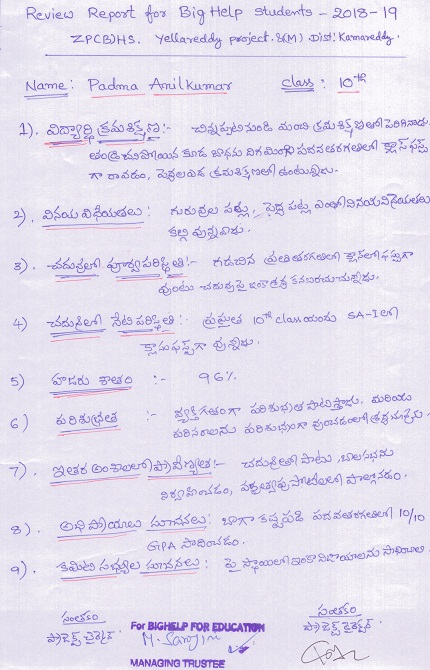 Review Report for Big Help Students - 2018-19
ZPCB)HS. Yellareddy project. &(M) Dist: Kamareddy.
Name: Padma Anilkumar Class: 10th
1). విద్యార్థి క్రమశిక్షణ:- చిన్నప్పటినుండి మంచి క్రమశిక్షణతో పెరిగినాడు.
తండ్రి చనిపోయిన కూడ బాధను దిగమింగి పదవతరగతిలో క్లాస్ ఫస్ట్
గా రావడం, పెద్దలయెడ క్రమశిక్షణతో ఉంటున్నాడు.
2). వినయ విధేయతలు: గురువుల పట్ల, పెద్ద పట్ల ఎంతో వినయవిధేయతలు
కల్గి వున్నాడు.
3). చదువులో పూర్వపరిస్థితి:- గడచిన ప్రతి తరగతిలో క్లాస్‌లో ఫస్ట్‌గా
వుంటు చదువుపై ఇంకా శ్రద్ధ కనబరచుచున్నాడు.
4) చదువులో నేటి పరిస్థితి:- ప్రస్తుత 10th class యందు SA-I లో
క్లాసు ఫస్ట్‌గా వున్నాడు.
5) హాజరు శాతం :- 96%
6) పరిశుభ్రత :- వ్యక్తిగతంగా పరిశుభ్రత పాటిస్తాడు. మరియు
పరిసరాలను పరిశుభ్రంగా వుంచడంలో
7). ఇతర అంశాలలో ప్రావీణ్యత:- చదువుతో పాటు, బాలసభను
నిర్వహించడం, వక్తృత్వపు పోటీలలో పాల్గొనడం.
8). అభిప్రాయాలు సూచనలు: బాగా కష్టపడి పదవతరగతిలో 10/10
GPA సాధించడం.
9). కమిటి సభ్యుల సూచనలు: పై స్థాయిలో ఇంకా విజయాలను సాధించాలి.
సంతకం సంతకం
ప్రాజెక్ట్ డైరెక్టర్. For BIGHELP FOR EDUCATION ప్రాజెక్ట్ డైరెక్టర్.
MANAGING TRUSTEE